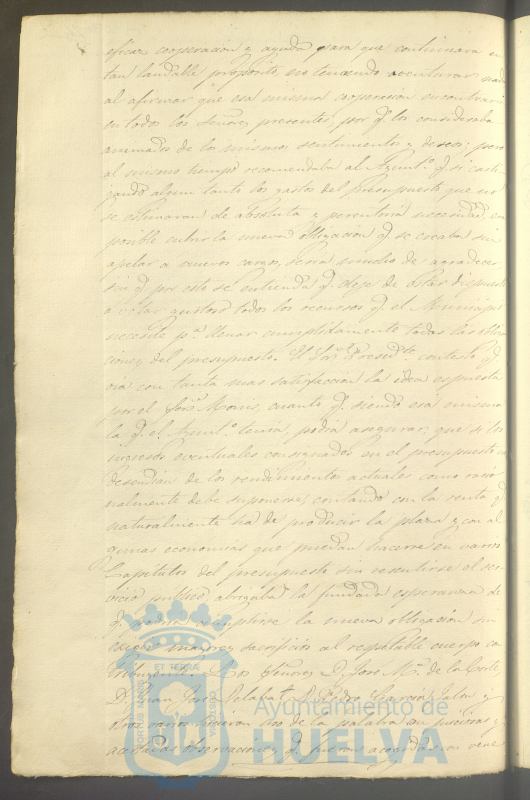 eficaz cooperacion y ayuda para que continuara en
tan laudable proposito, no teniendo aventurar nada
al afirmar que esa misma cooperacion encontraria
en todos los Señores presentes, por q. los consideraba
animados de los mismos sentimientos y deseos; pero
al mismo tiempo recomendaba al Ayunt.º q. si casti-
gando algun tanto los gastos del presupuesto que no
se estimaran de absoluta y perentoria necesidad, era
posible cubrir la nueva obligacion q. se creaba sin
apelar a nuevos cargos, seria mucho de agradecer
sin q. por esto se entienda q. deje de estar dispuesto
a votar gustoso todos los recursos q. el Municipio
necesite p.ª llenar cumplidamente todas las obliga
ciones del presupuesto. El Sor. Presid.te contestó q.
oia con tanta mas satisfaccion la idea espuesta
por el Sor. cuanto q. siendo esa misma
la q. el Ayunt.º tenia, podia asegurar, que si los
ingresos eventuales consignados en el presupuesto no
desendian de los rendimientos actuales como racio
nalmente debe suponerse, contando con la renta q.
naturalmente ha de producir la plaza y con al
gunas economias que puedan hacerse en varios
Capitulos del presupuesto sin resentirse el ser
vicio publico, abrigaba la fundada esperanza de
q. podria cumplirse la nueva obligacion sin
mayores sacrificios al respetable cuerpo con
tribuyente. Los Señores D. José M.ª de la Corte,
D. Juan José D. Pedro Garcia y
otros varios hicieron uso de la palabra en juiciosas y
acertadas observaciones q. fueron acogidas con
PORTUS MARIS ET TERRAE CUSTODIA
Ayuntamiento de
HUELVA